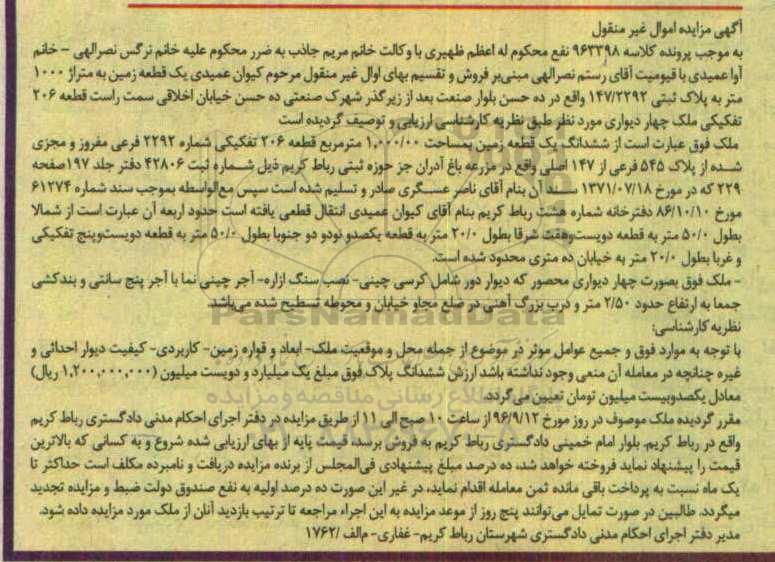 آگهی مزایده اموال غیر منقول
به موجب پرونده کلاسه ۹۶۳۳۹۸ نفع محکوم له اعظم ظهیری با وکالت خانم مریم جاذب به ضرر محکوم علیه خانم نرگس نصرالهی - خانم
آوا عمیدی با قیومیت آقای رستم نصرالهی مبنی‌بر فروش و تقسیم بهای اوال غیر منقول مرحوم کیوان عمیدی یک قطعه زمین به متراژ ۱۰۰۰
متر به پلاک ثبتی ۱۴۷/۲۲۹۲ واقع در ده حسن بلوار صنعت بعد از زیرگذر شهرک صنعتی ده حسن خیابان اخلاقی سمت راست قطعه ۲۰۶
تفکیکی ملک چهار دیواری مورد نظر طبق نظریه کارشناسی ارزیابی و توصیف گردیده است
ملک فوق عبارت است از ششدانگ یک قطعه زمین بمساحت ۱,۰۰۰/۰۰ مترمربع قطعه ۲۰۶ تفکیکی شماره ۲۲۹۲ فرعی مفروز و مجزی
شده از پلاک ۵۴۵ فرعی از ۱۴۷ اصلی واقع در مزرعه باغ آدران جز حوزه ثبتی رباط کریم ذیل شماره ثبت ۴۲۸۰۶ دفتر جلد ۱۹۷ صفحه
۲۲۹ که در مورخ ۱۳۷۱/۰۷/۱۸ سند آن بنام آقای ناصر عسگری صادر و تسلیم شده است سپس مع‌الواسطه بموجب سند شماره ۶۱۲۷۴
مورخ ۸۶/۱۰/۱۰ دفترخانه شماره هشت رباط کریم بنام آقای کیوان عمیدی انتقال قطعی یافته است حدود اربعه آن عبارت است از شمالا
بطول ۵۰/۰ متر به قطعه دویست‌وهفت شرقا بطول ۲۰/۰ متر به قطعه یکصدو نودو دو جنوبا بطول ۵۰/۰ متر به قطعه دویست‌وپنج تفکیکی
و غربا بطول ۲۰/۰ متر به خیابان ده متری محدود شده است.
- ملک فوق بصورت چهار دیواری محصور که دیوار دور شامل کرسی چینی- نصب سنگ ازاره- آجر چینی نما با آجر پنج سانتی و بندکشی
جمعا به ارتفاع حدود ۲/۵۰ متر و درب بزرگ آهنی در ضلع مجاو خیابان و محوطه تسطیح شده می‌باشد.
ParsNamadData
نظریه کارشناسی:
با توجه به موارد فوق و جمیع عوامل موثر در موضوع از جمله محل و موقعیت ملک- ابعاد و قواره زمین- کاربردی- کیفیت دیوار احداثی و
غیره چنانچه در معامله آن منعی وجود نداشته باشد ارزش ششدانگ پلاک فوق مبلغ یک میلیارد و دویست میلیون (۱,۲۰۰,۰۰۰,۰۰۰ ریال)
معادل یکصدوبیست میلیون تومان تعیین می‌گردد.
مقرر گردیده ملک موصوف در روز مورخ ۹۶/۹/۱۲ از ساعت ۱۰ صبح الی ۱۱ از طریق مزایده در دفتر اجرای احکام مدنی دادگستری رباط کریم
واقع در رباط کریم. بلوار امام خمینی دادگستری رباط کریم به فروش برسد، قیمت پایه از بهای ارزیابی شده شروع و به کسانی که بالاترین
قیمت را پیشنهاد نماید فروخته خواهد شد، ده درصد مبلغ پیشنهادی فی‌المجلس از برنده مزایده دریافت و نامبرده مکلف است حداکثر تا
یک ماه نسبت به پرداخت باقی مانده ثمن معامله اقدام نماید، در غیر این صورت ده درصد اولیه به نفع صندوق دولت ضبط و مزایده تجدید
میگردد. طالبین در صورت تمایل می‌توانند پنج روز از موعد مزایده به این اجراء مراجعه تا ترتیب بازدید آنان از ملک مورد مزایده داده شود.
مدیر دفتر اجرای احکام مدنی دادگستری شهرستان رباط کریم- غفاری- م‌الف /۱۷۶۲